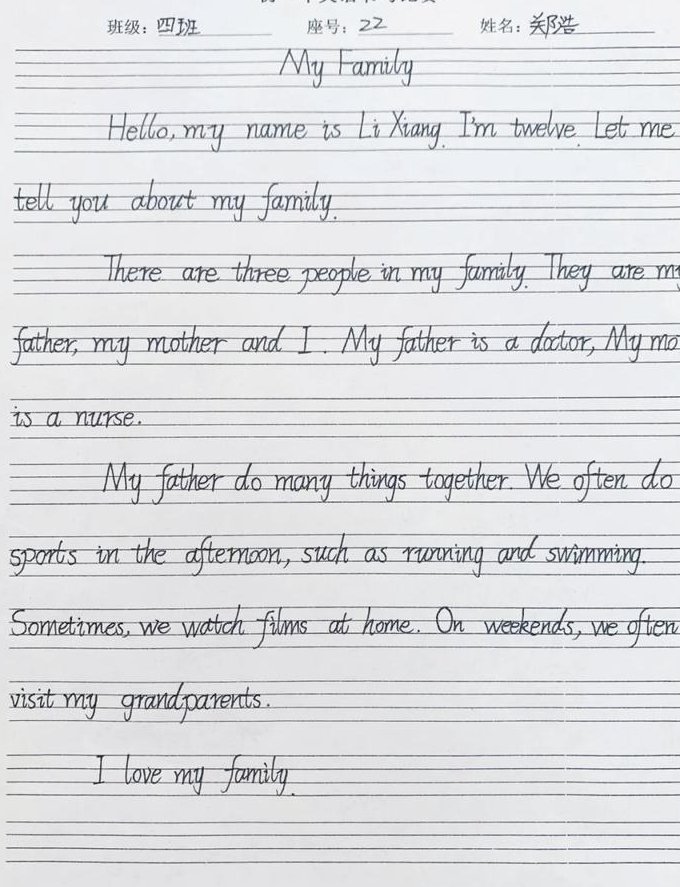 班级：四班 座号：22 姓名：郑浩
My Family
Hello, my name is Li Xiang. I'm twelve. Let me
tell you about my family.
There are three people in my family. They are my
father, my mother and I. My father is a doctor, My mo
is a nurse.
My father do many things together. We often do
sports in the afternoon, such as running and swimming.
Sometimes, we watch films at home. On weekends, we often
visit my grandparents.
I love my family.